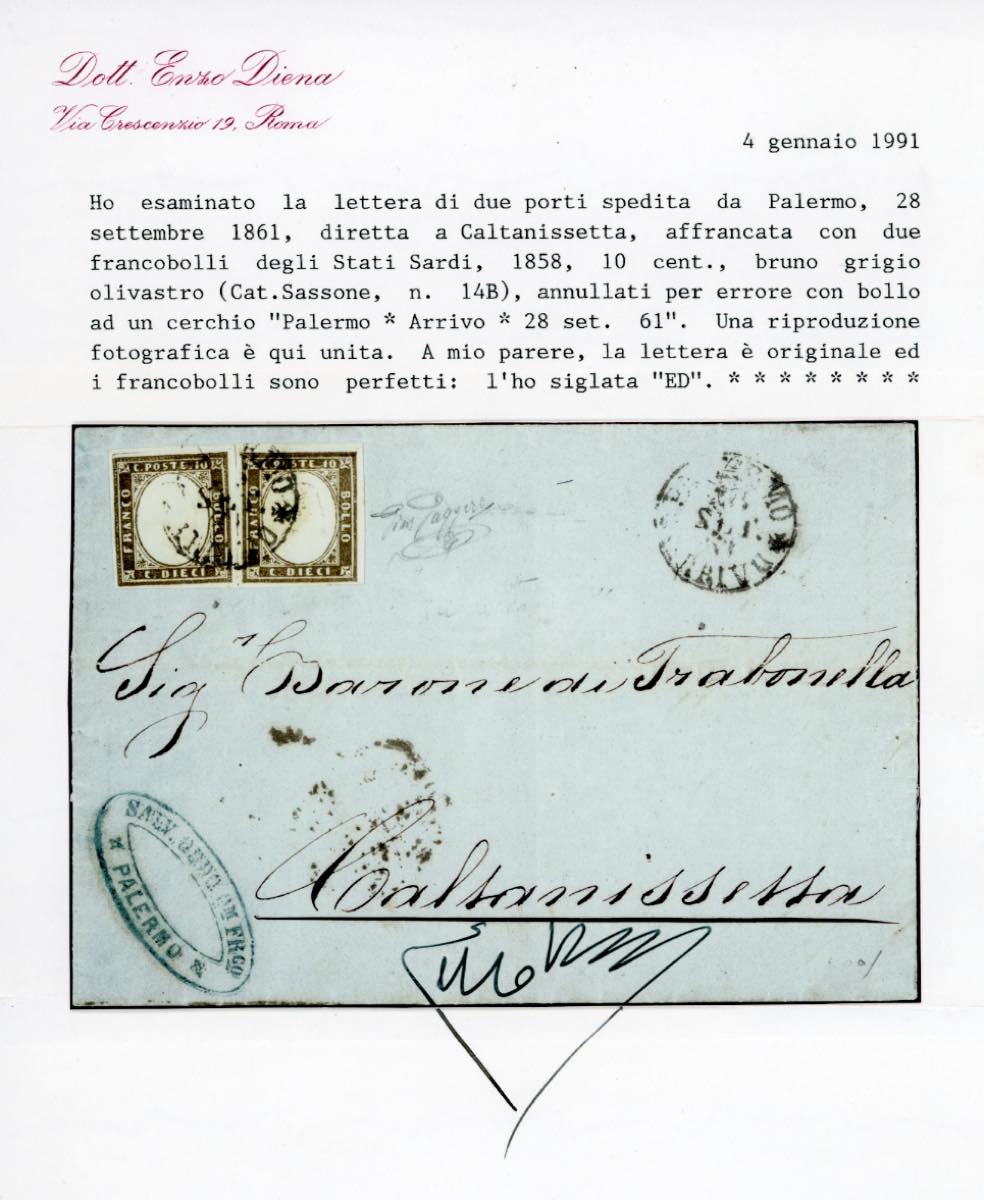 Dott. Enzo Diena
Via Crescenzio 19, Roma
4 gennaio 1991
Ho esaminato la lettera di due porti spedita da Palermo, 28
settembre 1861, diretta a Caltanissetta, affrancata con due
francobolli degli Stati Sardi, 1858, 10 cent., bruno grigio
olivastro (Cat.Sassone, n. 14B), annullati per errore con bollo
ad un cerchio "Palermo * Arrivo * 28 set. 61". Una riproduzione
fotografica è qui unita. A mio parere, la lettera è originale ed
i francobolli sono perfetti: l'ho siglata "ED". * * * * * * * *
C. POSTE. 10
FRANCO
BOLLO
C. DIECI
C. POSTE 10
FRANCO
BOLLO
C. DIECI
Sig.r Barone di Trabonella
Caltanissetta
PALERMO